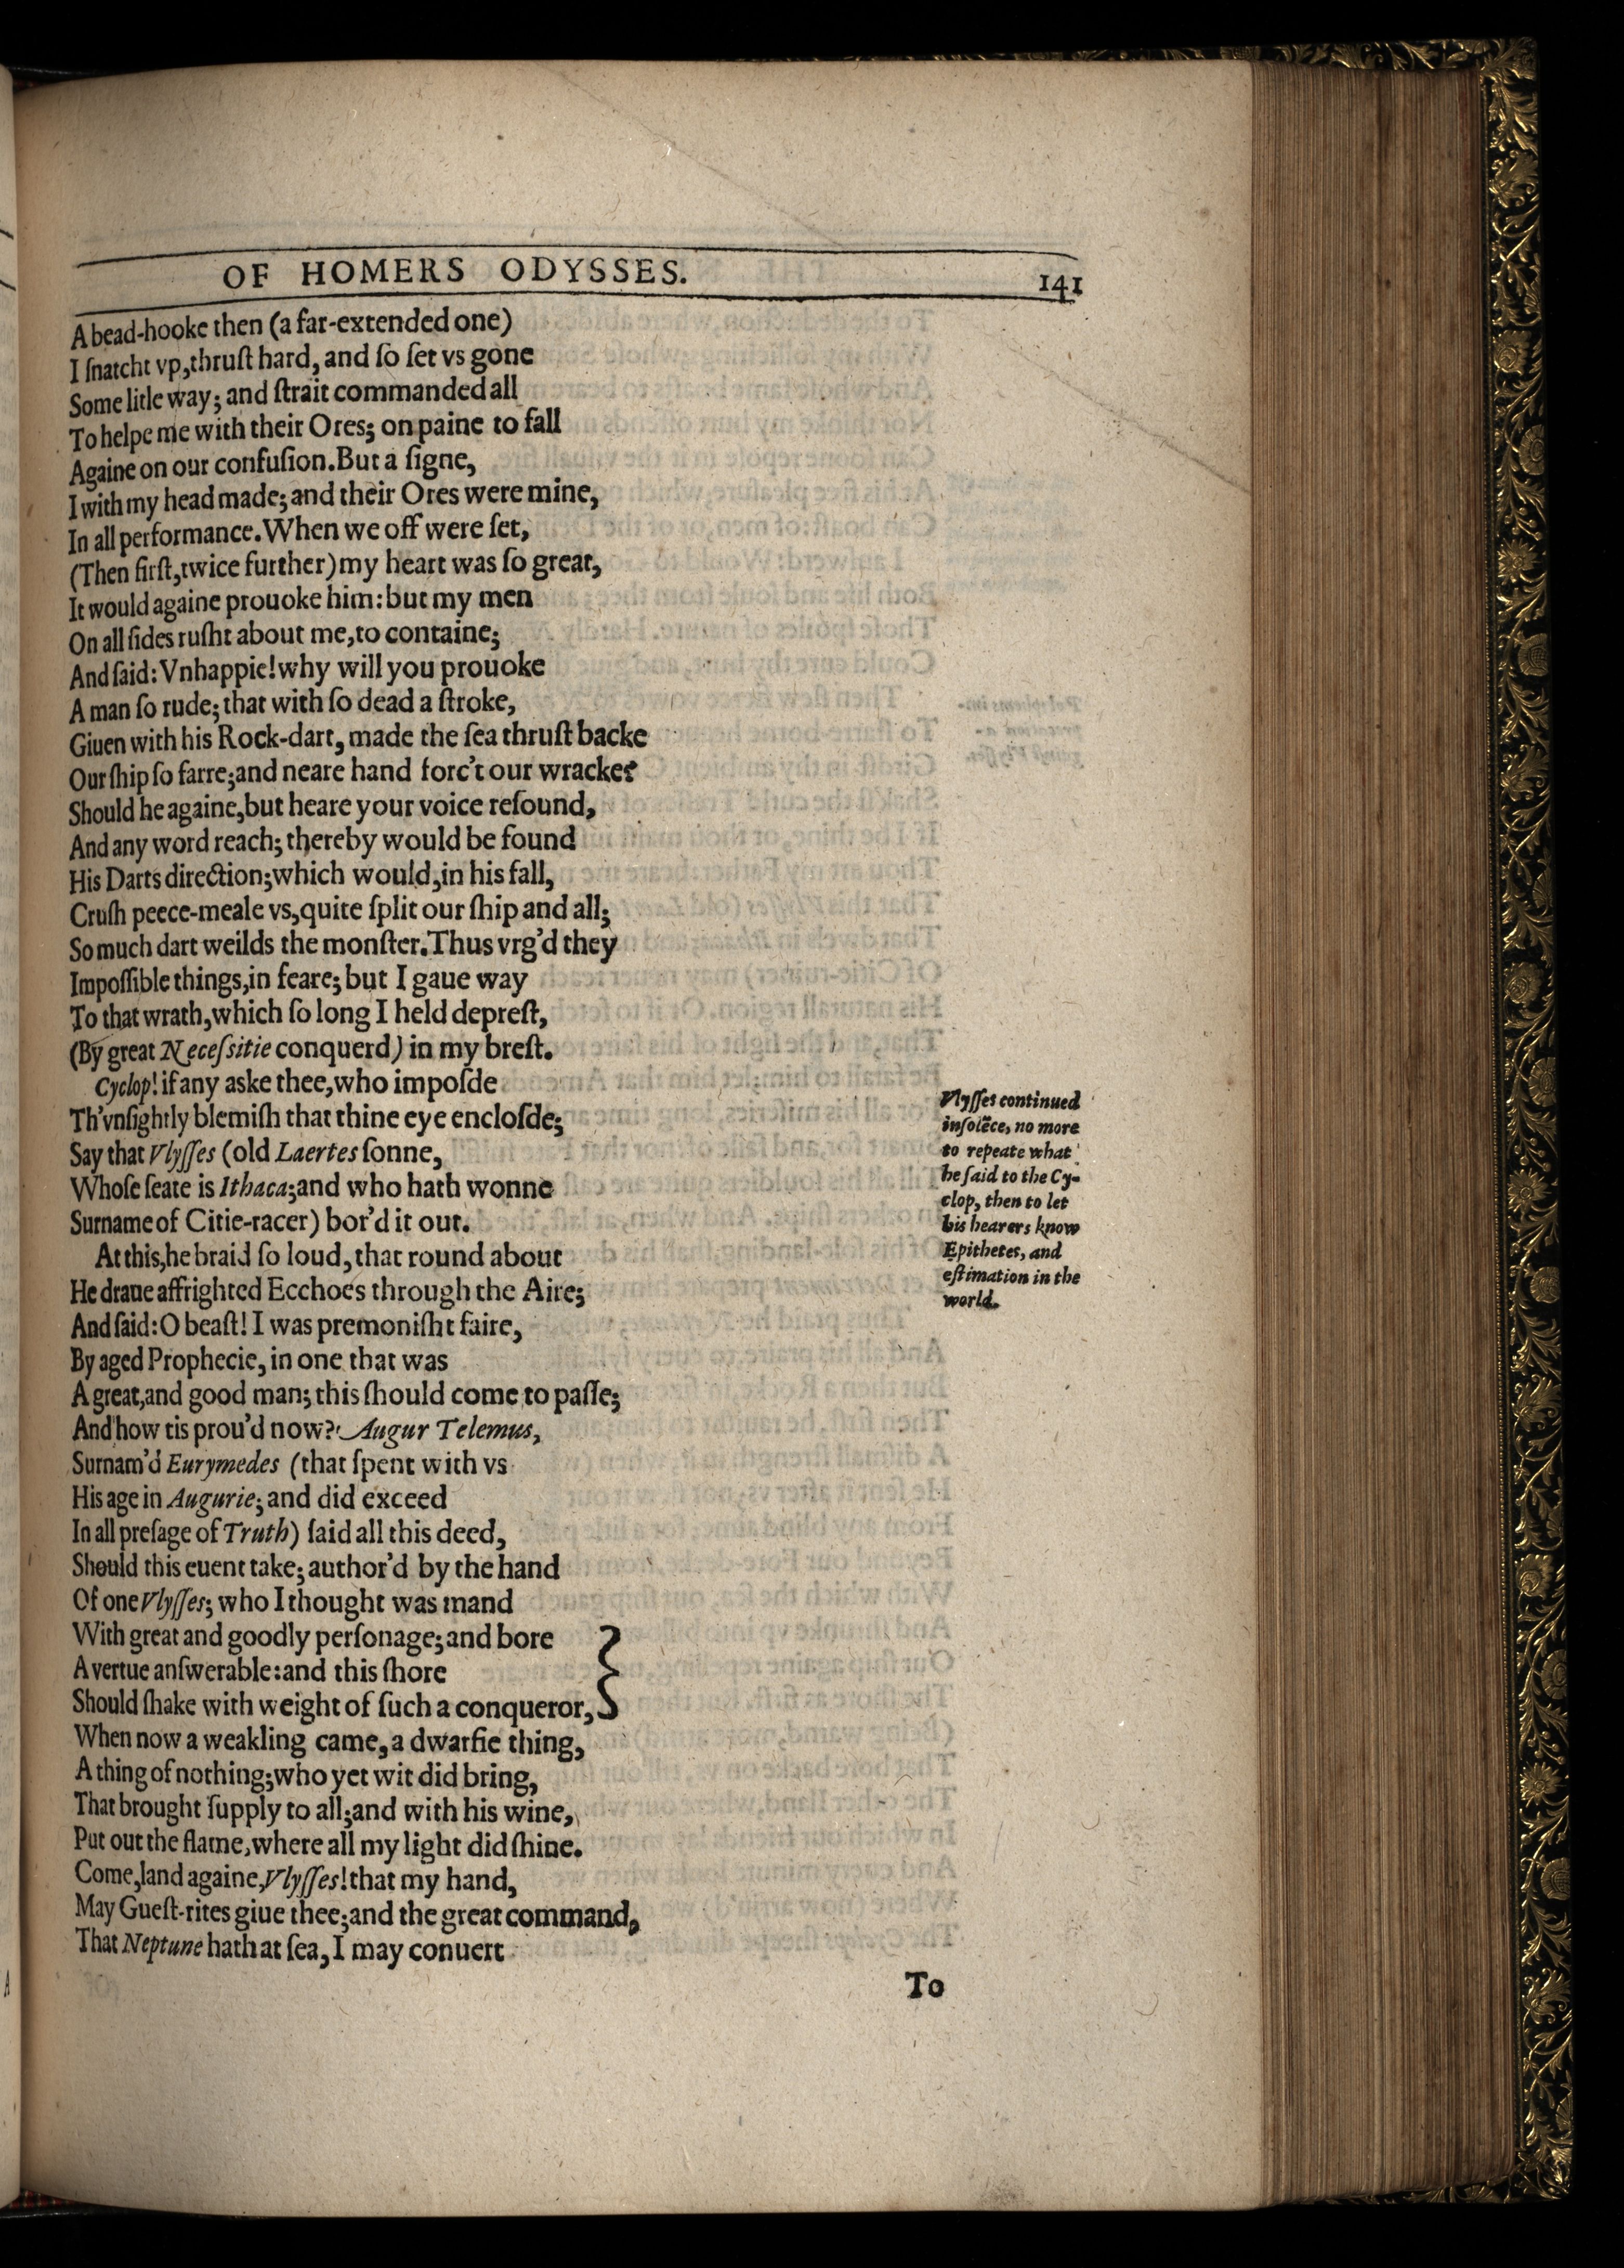 OF HOMERS ODYSSES. 141
A bead-hooke then (a far-extended one)
I ſnatcht vp, thruſt hard, and ſo ſet vs gone
Some litle way; and ſtrait commanded all
To helpe me with their Ores; on paine to fall
Againe on our confuſion. But a ſigne,
I with my head made; and their Ores were mine,
In all performance. When we off were ſet,
(Then firſt, twice further) my heart was ſo great,
It would againe prouoke him: but my men
On all ſides ruſht about me, to containe;
And ſaid: Vnhappie! why will you prouoke
A man ſo rude; that with ſo dead a ſtroke,
Giuen with his Rock-dart, made the ſea thruſt backe
Our ſhip ſo farre; and neare hand forc't our wracke?
Should he againe, but heare your voice reſound,
And any word reach; thereby would be found
His Darts direction; which would, in his fall,
Cruſh peece-meale vs, quite ſplit our ſhip and all;
So much dart weilds the monſter. Thus vrg'd they
Impoſſible things, in feare; but I gaue way
To that wrath, which ſo long I held depreſt,
(By great Neceſsitie conquerd) in my breſt.
Cyclop! if any aske thee, who impoſde
Th'vnſightly blemiſh that thine eye encloſde;
Say that Vlyſſes (old Laertes ſonne,
Whoſe ſeate is Ithaca; and who hath wonne
Surname of Citie-racer) bor'd it out.
At this, he braid ſo loud, that round about
He draue affrighted Ecchoes through the Aire;
And ſaid: O beaſt! I was premoniſht faire,
By aged Prophecie, in one that was
A great, and good man; this ſhould come to paſſe;
And how tis prou'd now? Augur Telemus,
Surnam'd Eurymedes (that ſpent with vs
His age in Augurie; and did exceed
In all preſage of Truth) ſaid all this deed,
Should this euent take; author'd by the hand
Of one Vlyſſes; who I thought was mand
With great and goodly perſonage; and bore
A vertue anſwerable: and this ſhore
Should ſhake with weight of ſuch a conqueror,
When now a weakling came, a dwarfie thing,
A thing of nothing; who yet wit did bring,
That brought ſupply to all; and with his wine,
Put out the flame, where all my light did ſhine.
Come, land againe, Vlyſſes! that my hand,
May Gueſt-rites giue thee; and the great command,
That Neptune hath at ſea, I may conuert
To
Vlyſſes continued
inſolẽce, no more
to repeate what
he ſaid to the Cy-
clop, then to let
his hearers know
Epithetes, and
eſtimation in the
world.